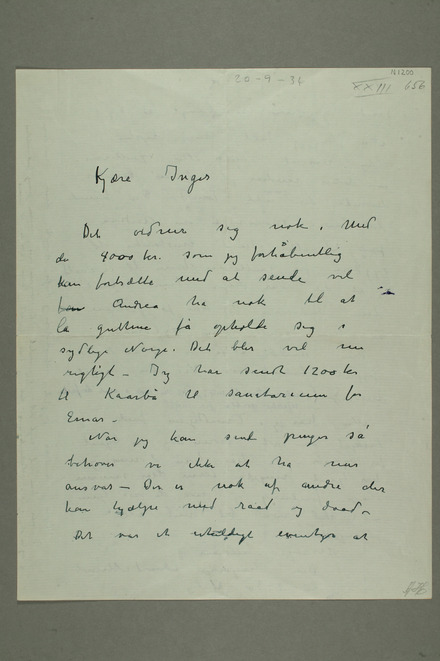 20-9-34
N1200
XXIII 656
Kjære Inger
Det ordner sig nok. Med
de 4000 kr. som jeg forhåbentlig
kan fortsætte med at sende vil
Andrea ha nok til at
la guttene få opholde sig i
sydlige Norge. Det blir vel
rigtigt – Jeg har sendt 1200 kr
til Kaarbö til sanatorium for
Einar –
Når jeg kan sende penger så
behøver vi ikke at ha mer
ansvar – Der er nok af andre der
kan hjælpe med raad og daad –
Det var et eventyr at